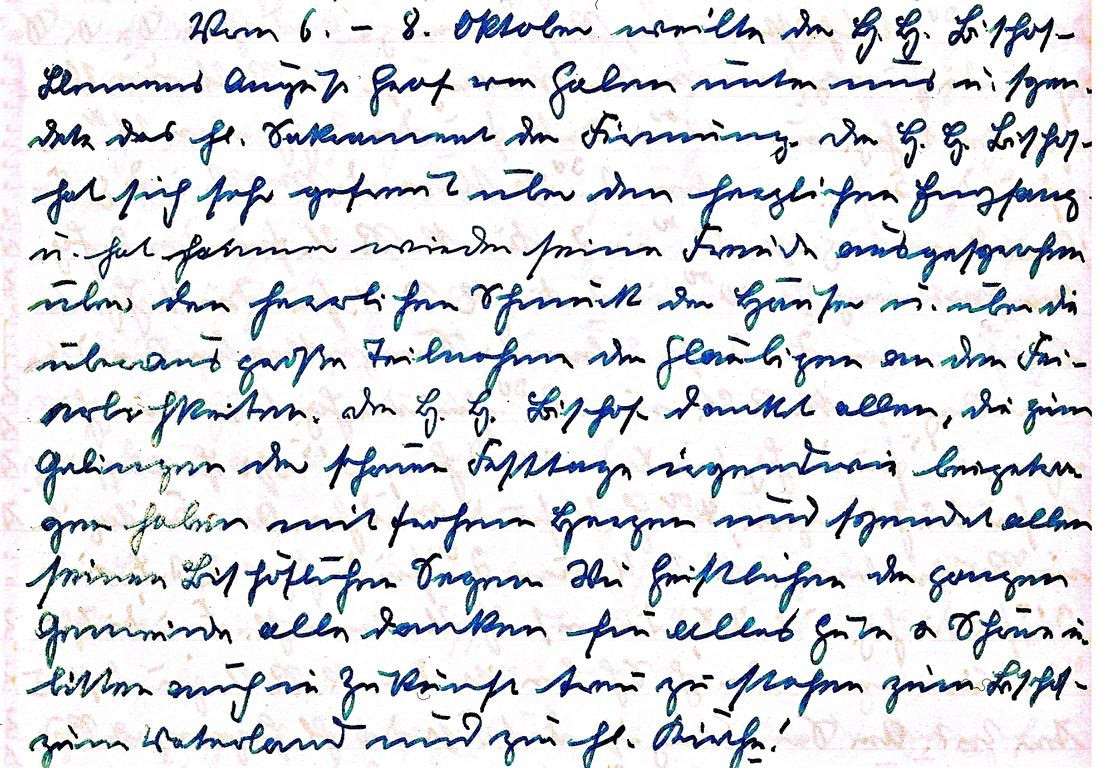 Vom 6. – 8. Oktober weilte der H. H. Bischof
Clemens August Graf von Galen unter uns u. spen-
dete das hl. Sakrament der Firmung. Der H. H. Bischof
hat sich sehr gefreut über den herzlichen Empfang
u. hat immer wieder seine Freude ausgesprochen
über den herrlichen Schmuck der Häuser u. über die
überaus große Teilnahme der Gläubigen an den Fei-
erlichkeiten. Der H. H. Bischof dankt allen, die zum
Gelingen der schönen Festtage irgendwie beigetra-
gen haben mit frohem Herzen und spendet allen
seinen Bischöflichen Segen. Wir Geistlichen der ganzen
Gemeinde alle danken für alles Gute u. Schöne u.
bitten auch in Zukunft treu zu stehen zum Bischof-
zum Vaterland und zur hl. Kirche!